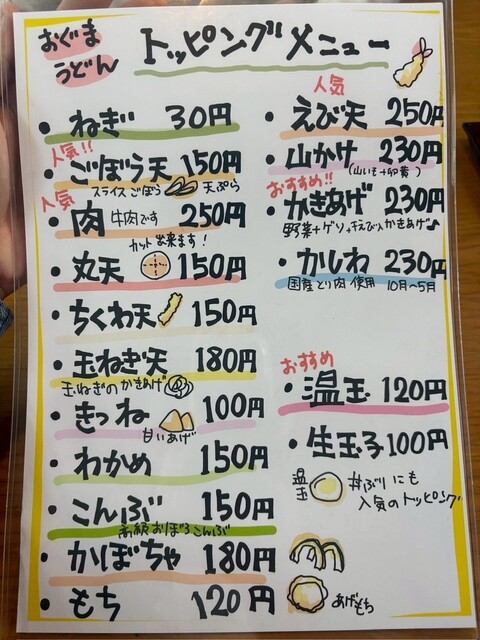 おぐま
うどん
トッピングメニュー
・ねぎ 30円
人気!!
・ごぼう天 150円
スライスごぼう 天ぷら
人気
・肉 牛肉です 250円
カット出来ます!
・丸天 150円
・ちくわ天 150円
・玉ねぎ天 180円
玉ねぎのかきあげ
・きつね 100円
甘いあげ
・わかめ 150円
・こんぶ 150円
高級おぼろこんぶ
・かぼちゃ 180円
・もち 120円
あげもち
人気
・えび天 250円
・山かけ 230円
(山いも+卵黄)
おすすめ!!
・かきあげ 230円
野菜+ゲソ+干えび入かきあげ♪
・かしわ 230円
国産とり肉使用 10月〜5月
おすすめ
・温玉 120円
・生玉子 100円
温玉
丼ぶりにも
人気のトッピング